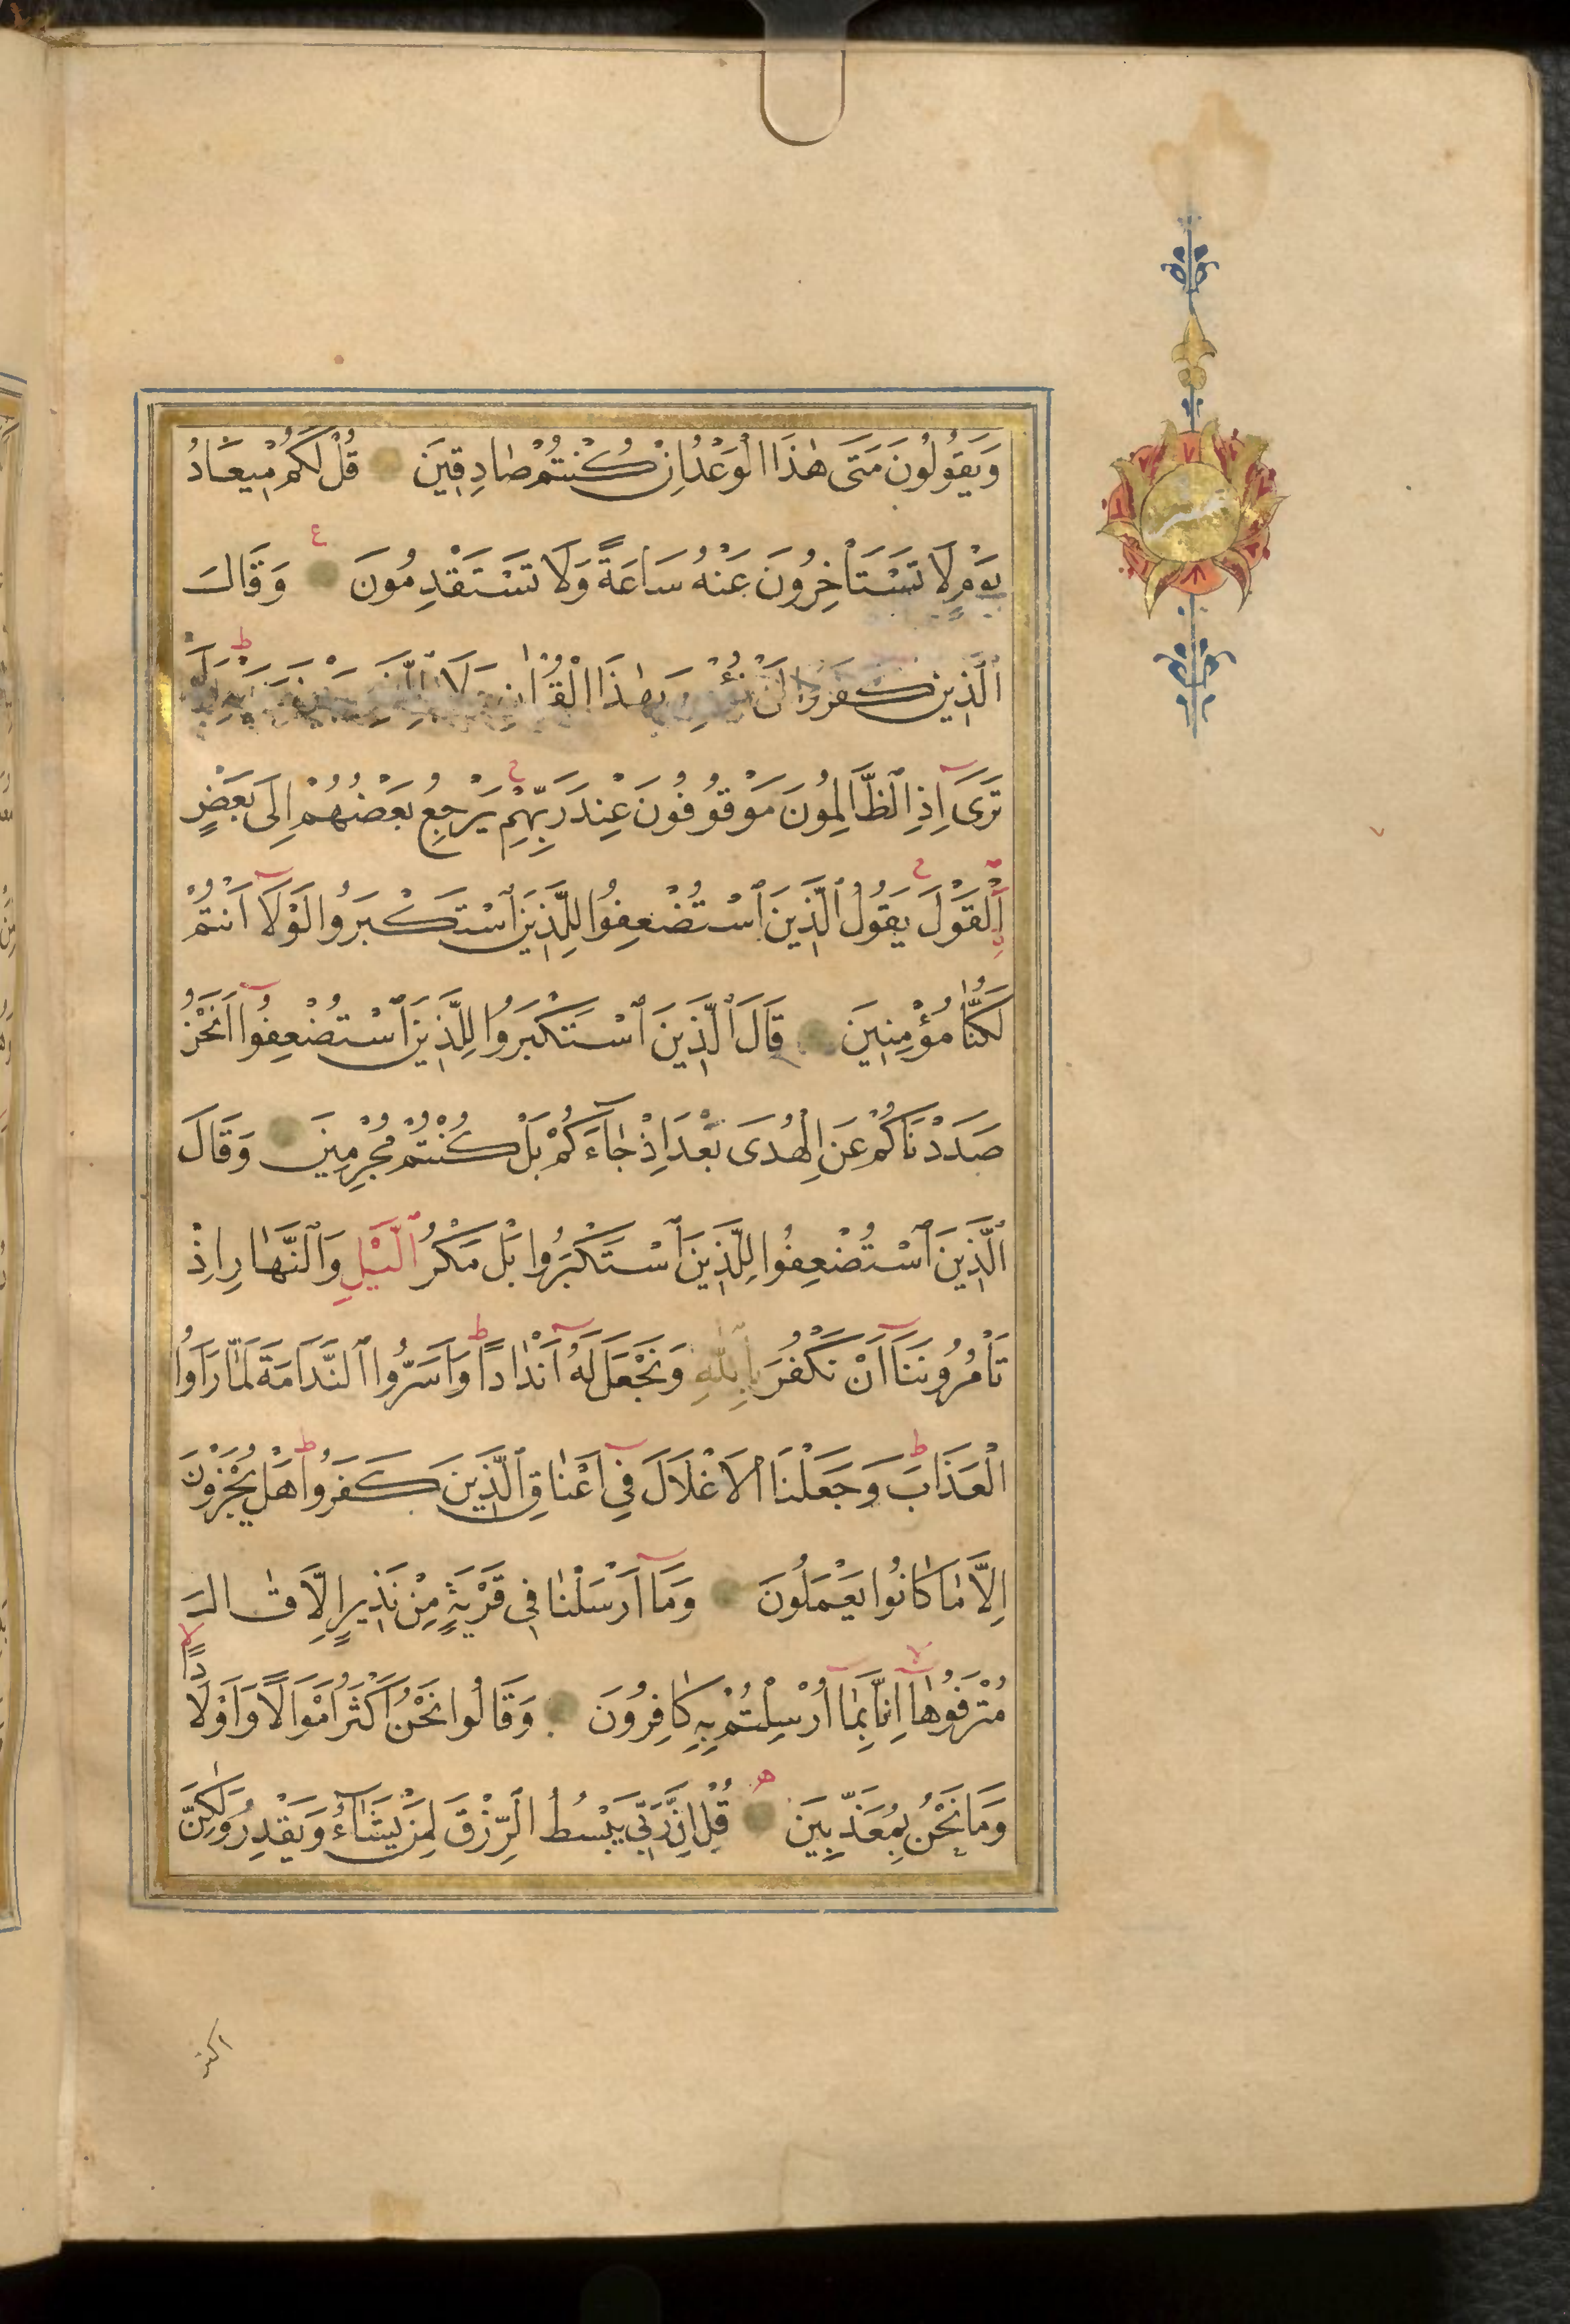 وَيَقُولُونَ مَتَى هٰذَا الْوَعْدُ اِنْ كُنْتُمْ صَادِقِينَ قُلْ لَكُمْ مِيعَادُ
يَوْمٍ لَا تَسْتَأْخِرُونَ عَنْهُ سَاعَةً وَلَا تَسْتَقْدِمُونَ ع وَقَالَ
الَّذِينَ كَفَرُوا لَنْ نُؤْمِنَ بِهٰذَا الْقُرْاٰنِ وَلَا
تَرَىٓ اِذِ الظَّالِمُونَ مَوْقُوفُونَ عِنْدَ رَبِّهِمْ ج يَرْجِعُ بَعْضُهُمْ اِلَى بَعْضٍ
اِلْقَوْلَ ج يَقُولُ الَّذِينَ اسْتُضْعِفُوا لِلَّذِينَ اسْتَكْبَرُوا لَوْلَآ اَنْتُمْ
لَكُنَّا مُؤْمِنِينَ قَالَ الَّذِينَ اسْتَكْبَرُوا لِلَّذِينَ اسْتُضْعِفُوٓا اَنَحْنُ
صَدَدْنَاكُمْ عَنِ الْهُدَى بَعْدَ اِذْ جَآءَكُمْ بَلْ كُنْتُمْ مُجْرِمِينَ وَقَالَ
الَّذِينَ اسْتُضْعِفُوا لِلَّذِينَ اسْتَكْبَرُوا بَلْ مَكْرُ الَّيْلِ وَالنَّهَارِ اِذْ
تَأْمُرُونَنَآ اَنْ نَكْفُرَ بِاللّٰهِ وَنَجْعَلَ لَهُٓ اَنْدَادًا ط وَاَسَرُّوا النَّدَامَةَ لَمَّا رَاَوُا
الْعَذَابَ ط وَجَعَلْنَا الْاَغْلَالَ فِيٓ اَعْنَاقِ الَّذِينَ كَفَرُوا ط هَلْ يُجْزَوْنَ
اِلَّا مَا كَانُوا يَعْمَلُونَ وَمَآ اَرْسَلْنَا فِي قَرْيَةٍ مِنْ نَذِيرٍ اِلَّا قَالَ
مُتْرَفُوهَآ لا اِنَّا بِمَآ اُرْسِلْتُمْ بِهِ كَافِرُونَ وَقَالُوا نَحْنُ اَكْثَرُ اَمْوَالًا وَاَوْلَادًا لا
وَمَا نَحْنُ بِمُعَذَّبِينَ ه قُلْ اِنَّ رَبِّي يَبْسُطُ الرِّزْقَ لِمَنْ يَشَآءُ وَيَقْدِرُ وَلٰكِنَّ
اكثر